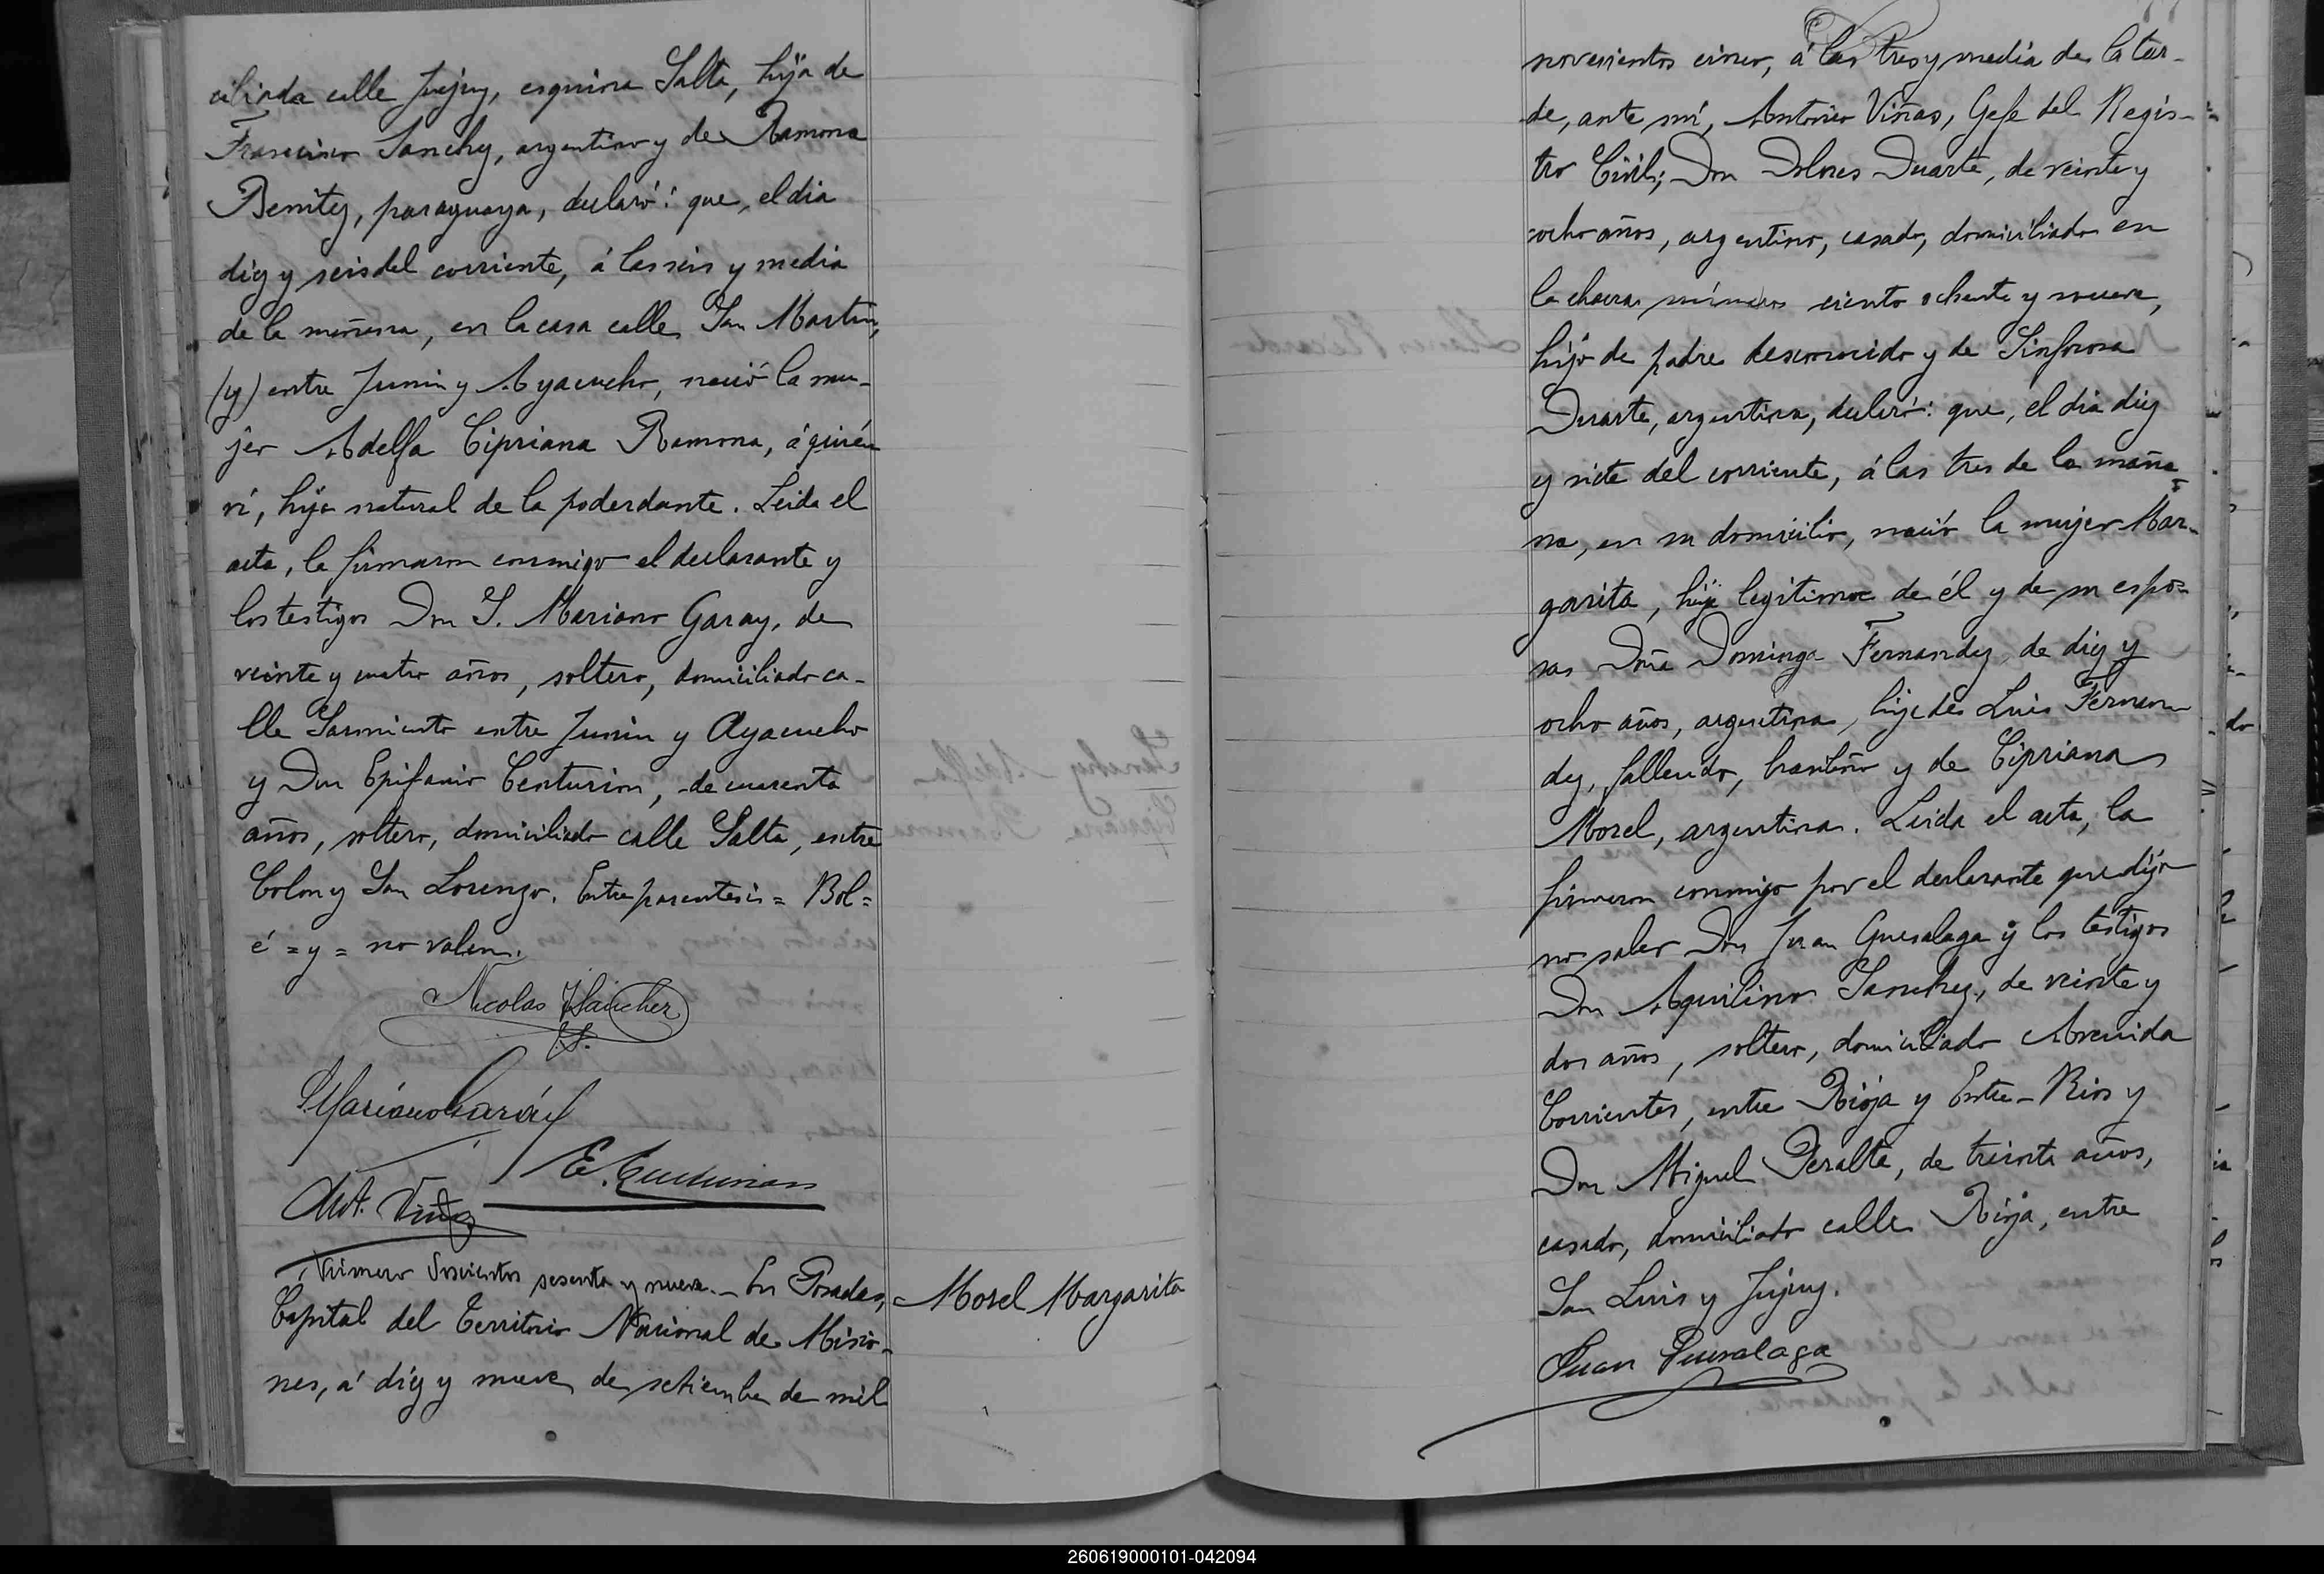 ciliada calle Jujuy, esquina Salta, hija de
Francisco Sanchez, argentino y de Ramona
Benitez, paraguaya, declaró: que, el dia
diez y seis del corriente, á las seis y media
de la mañana, en la casa calle San Martin,
(y) entre Junin y Ayacucho, nació la mu-
jer Adelfa Cipriana Ramona, á quién
ví, hija natural de la poderdante. Leida el
acta, la firmaron conmigo el declarante y
los testigos Don S. Mariano Garay, de
veinte y cuatro años, soltero, domiciliado ca-
lle Sarmiento entre Junin y Ayacucho
y Don Epifanio Centurion, de cuarenta
años, soltero, domiciliado calle Salta, entre
Colon y San Lorenzo. Entre parentesis = Bol =
é = y = no valen.
Nicolas Sanchez
S Mariano Garay
E. Centurion
Ant. Viñas
Número doscientos sesenta y nueve. - En Posadas,
Morel Margarita
Capital del Territorio Nacional de Misio-
nes, á diez y nueve de setiembre de mil
novecientos cinco, á las tres y media de la tar-
de, ante mí, Antonio Viñas, Gefe del Regis-
tro Civil; Don Dolores Duarte, de veinte y
ocho años, argentino, casado, domiciliado en
la chacra número ciento ochenta y nueve,
hijo de padre desconocido y de Sinforosa
Duarte, argentina, declaró: que, el dia diez
y siete del corriente, á las tres de la maña-
na, en su domicilio, nació la mujer Mar-
garita, hija legitima de él y de su espo-
sa Doña Dominga Fernandez, de diez y
ocho años, argentina, hija de Luis Fernan-
dez, fallecido, brasileño y de Cipriana
Morel, argentina. Leida el acta, la
firmaron conmigo por el declarante que dijo
no saber Don Juan Guesalaga y los testigos
Don Aquilino Sanchez, de veinte y
dos años, soltero, domiciliado Avenida
Corrientes, entre Rioja y Entre-Rios y
Don Miguel Peralta, de treinta años,
casado, domiciliado calle Rioja, entre
San Luis y Jujuy.
Juan Guesalaga
260619000101-042094